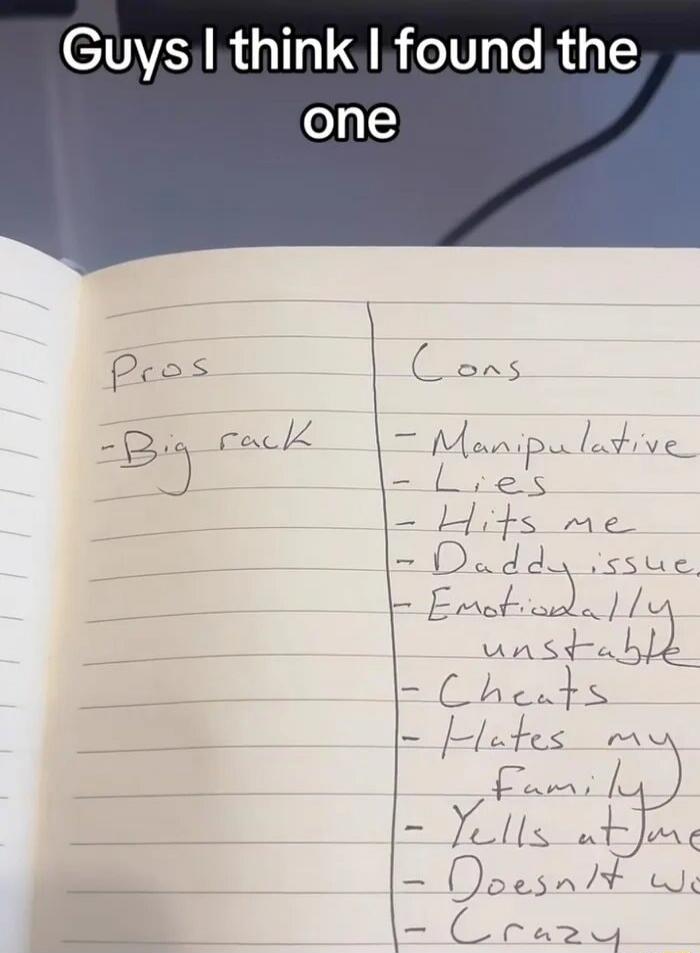 Guys I think I found the
one
Pros
Cons
-Big rack
- Manipulative
- Lies
- Hits me
- Daddy issue
- Emotionally
unstable
- Cheats
- Hates my
family
- Yells at me
- Doesn't
- Crazy